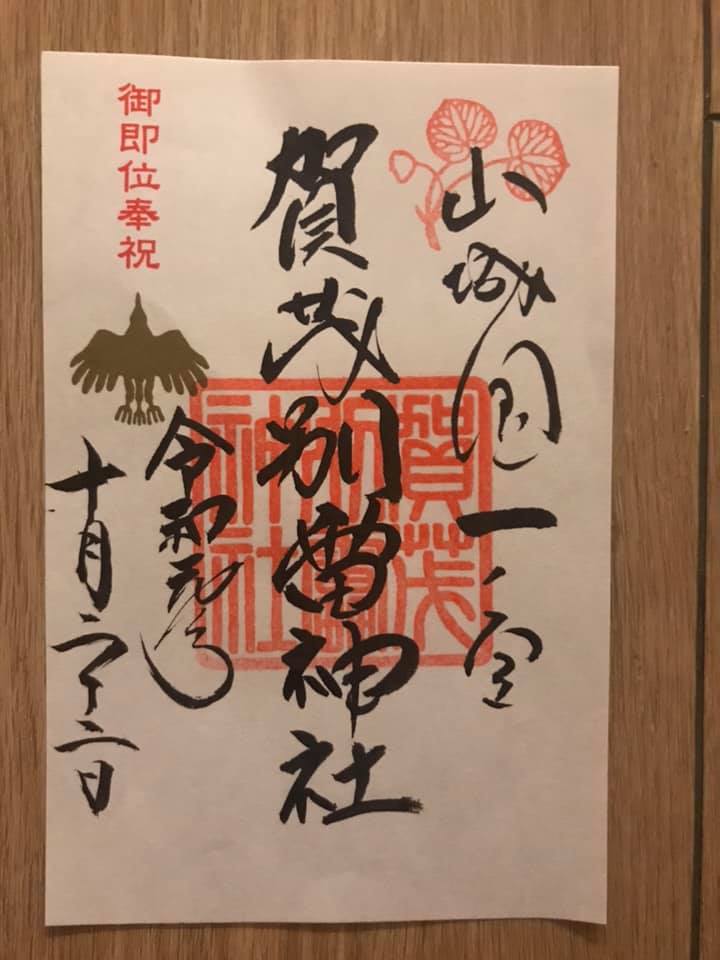 山城國一宮
賀茂別雷神社
賀茂別雷神社
御即位奉祝
令和元年
十月二十二日